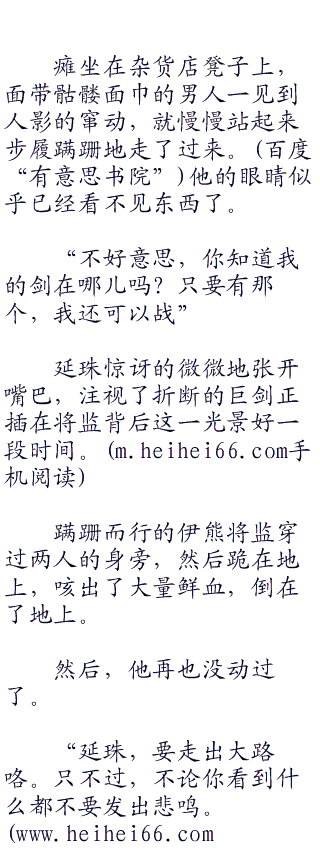 瘫坐在杂货店凳子上，
面带骷髅面巾的男人一见到
人影的窜动，就慢慢站起来
步履蹒跚地走了过来。(百度
“有意思书院”)他的眼睛似
乎已经看不见东西了。
“不好意思，你知道我
的剑在哪儿吗？只要有那
个，我还可以战”
延珠惊讶的微微地张开
嘴巴，注视了折断的巨剑正
插在将监背后这一光景好一
段时间。(m.heihei66.com手
机阅读)
蹒跚而行的伊熊将监穿
过两人的身旁，然后跪在地
上，咳出了大量鲜血，倒在
了地上。
然后，他再也没动过
了。
“延珠，要走出大路
咯。只不过，不论你看到什
么都不要发出悲鸣。
(www.heihei66.com